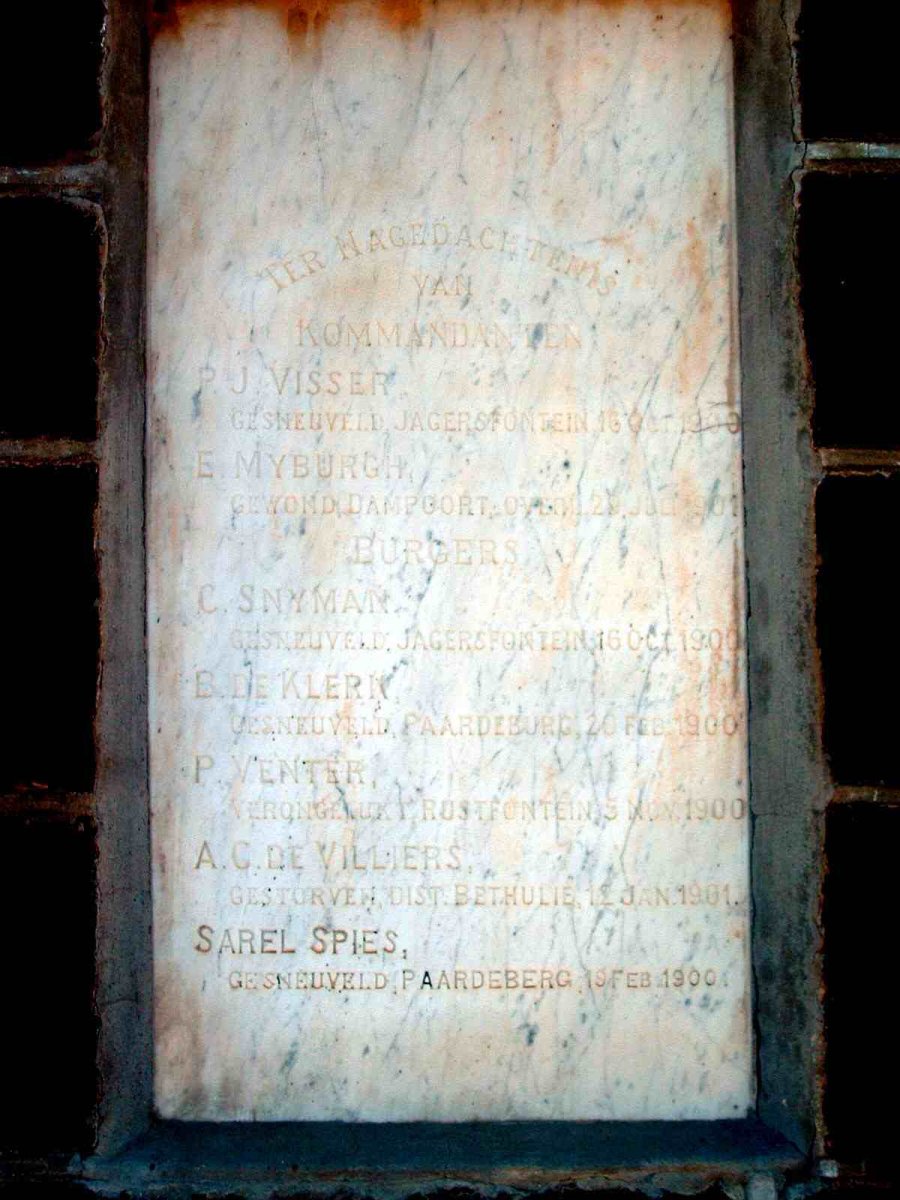 TER NAGEDACHTENIS
VAN
KOMMANDANTEN
P. J. VISSER,
GESNEUVELD, JAGERSFONTEIN, 16 OCT. 1900
E. MYBURGH,
GEWOND, DAMPOORT, OVERL. 29 JULI 1901
BURGERS
C. SNYMAN,
GESNEUVELD, JAGERSFONTEIN, 16 OCT. 1900
B. DE KLERK,
GESNEUVELD, PAARDEBURG, 20 FEB. 1900
P. VENTER,
VERONGELUKT, RUSTFONTEIN, 5 NOV. 1900
A. C. DE VILLIERS,
GESTORVEN, DIST. BETHULIE, 12 JAN. 1901.
SAREL SPIES,
GESNEUVELD, PAARDEBERG, 19 FEB. 1900.